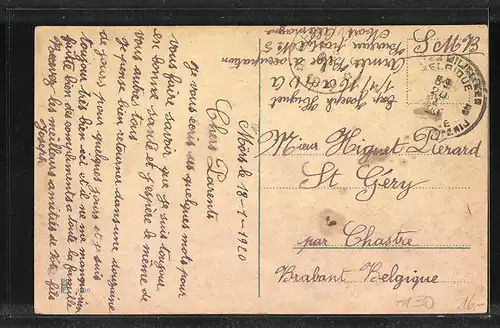 Mörs le 18-1-1920
Chers Parents
Je vous écris ces quelques mots pour
vous faire savoir que je suis toujour
en bonne santé et j'espère le même de
vous autres tous
je pense bien retourner dans une douzaine
de jours pour quelques jours et je suis
toujour très bien ici et il ne me manque rien
faites bien des compliments à toute la famille
Recevez les meilleurs amitiés de votre fils
Joseph
S M B
Exp Joseph Hiquet
Armée Belge d'occupation
Bureau postal No 5
Allemagne
BELGIQUE
Mieur Hiquet Piérard
St Géry
par Chastre
Brabant Belgique
16.-